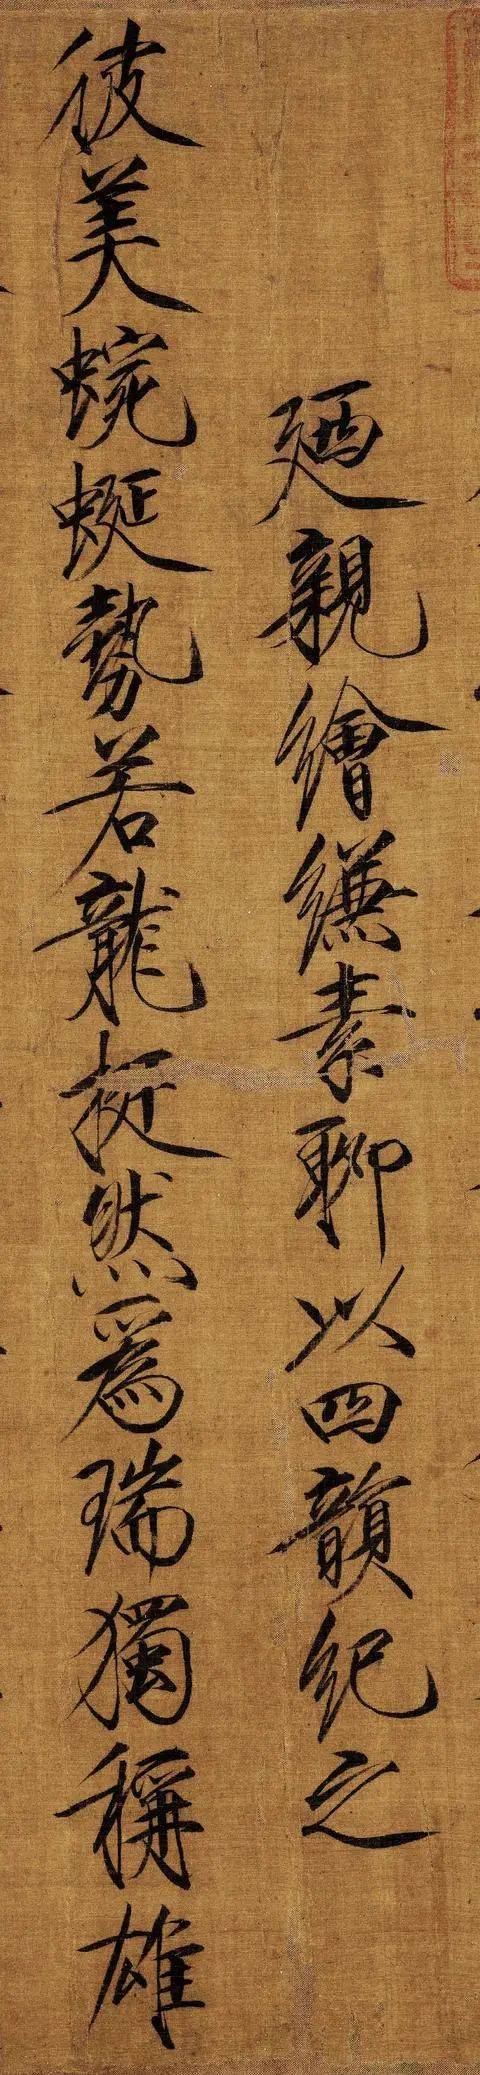 廼親繪縑素聊以四韻紀之
彼美蜿蜒勢若龍挺然為瑞獨稱雄